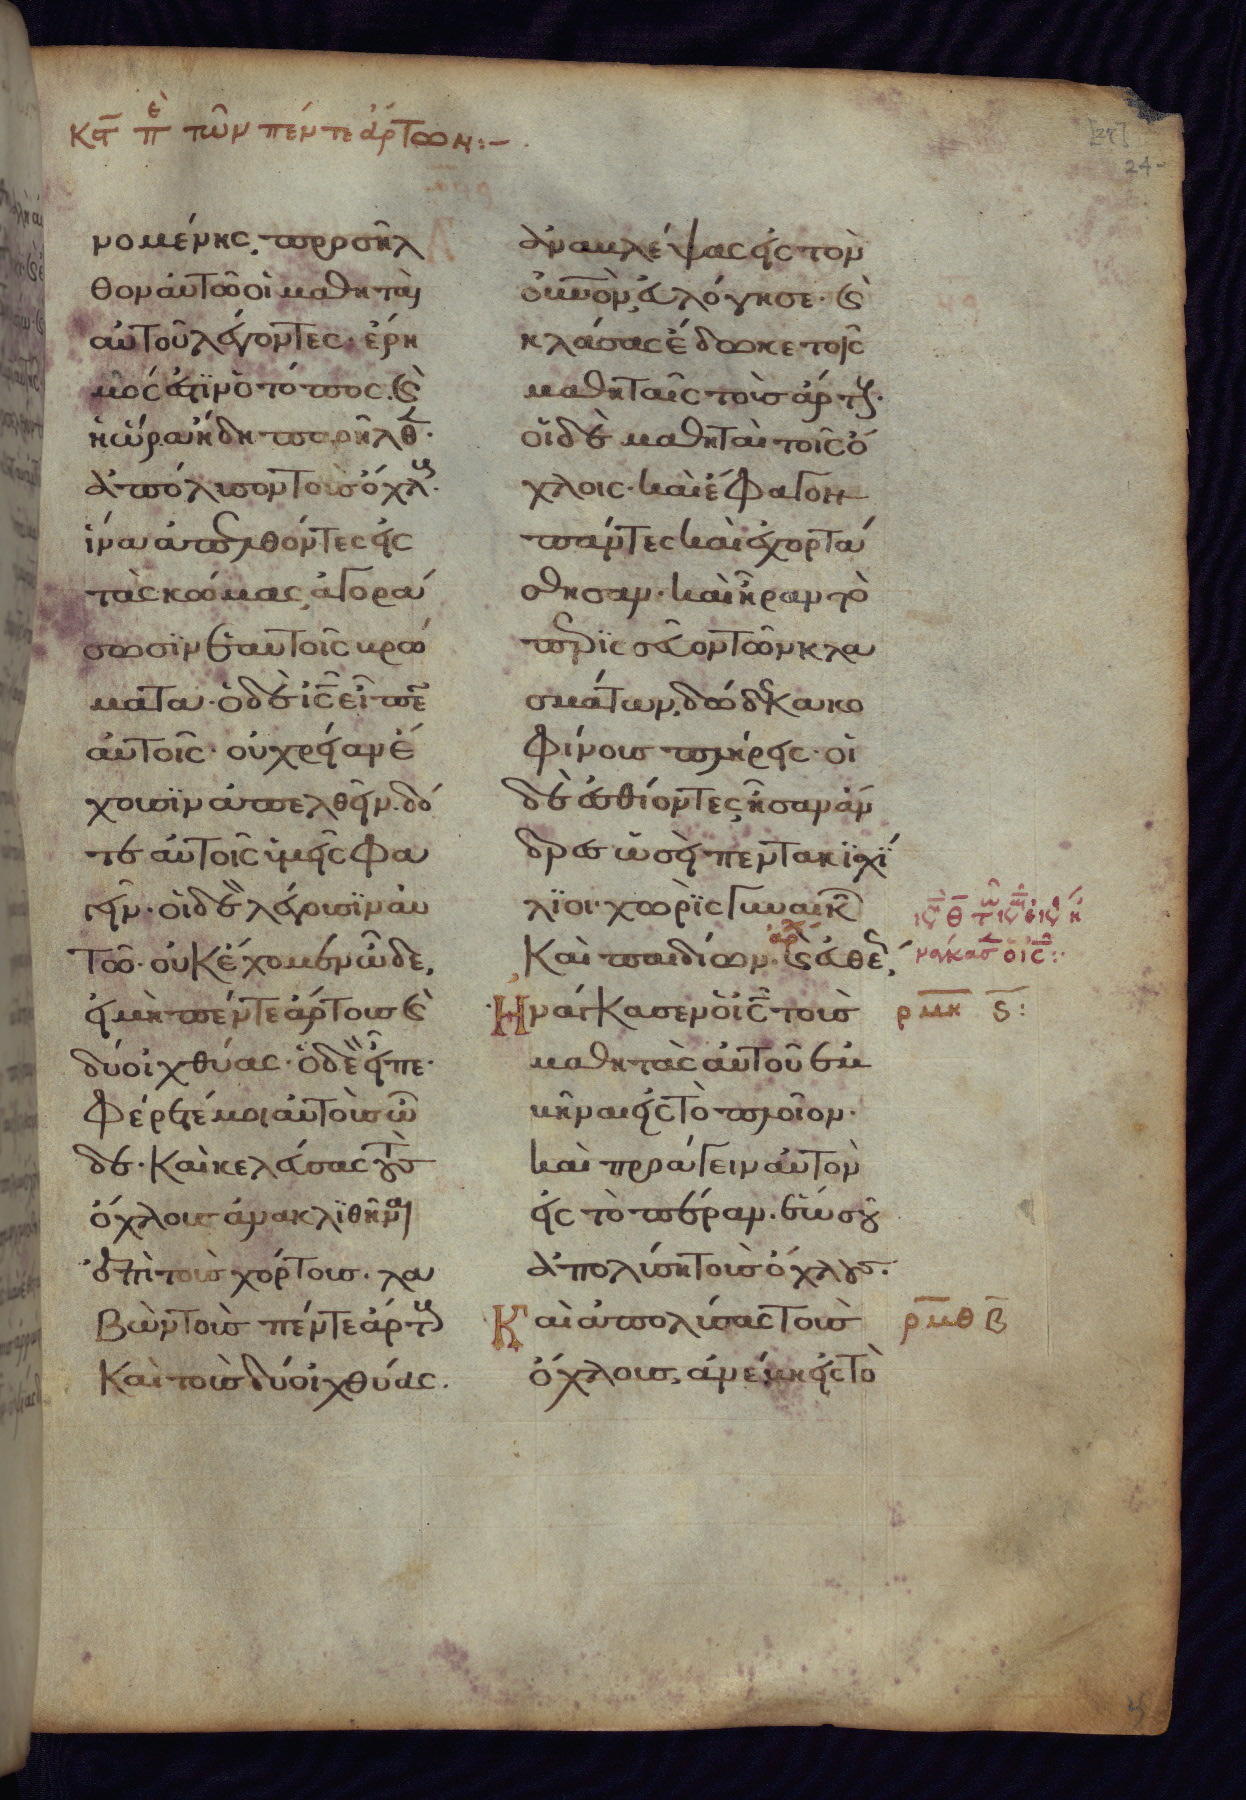 κε π̅ε̅ τῶν πέντε ἄρτων:–
νομένης, προσῆλ
θον αὐτῶ οἱ μαθηταὶ
αὐτοῦ λέγοντες· ἔρη
μός ἐστϊν ὁ τόπος. καὶ
ἡ ὥρα ἤδη παρῆλθεν·
ἀπόλυσον τοὺς ὄχλους·
ἵνα ἀπελθόντες εἰς
τὰς κώμας, ἀγορά
σωσϊν ἑαυτοῖς βρώ
ματα· ὁ δὲ ι̅ς̅ εἶπεν
αὐτοῖς· οὐ χρείαν ἔ
χουσϊν ἀπελθεῖν. δό
τε αὐτοῖς ὑμεῖς φα
γεῖν· οἱ δὲ λέγουσϊν αὐ
τῶ· οὐκ ἔχομεν ὧδε,
εἰ μὴ πέντε ἄρτους καὶ
δύο ἰχθύας· ὁ δὲ εἶπε·
φέρετέ μοι αὐτοὺς ὧ
δε· Καὶ κελεύσας τοὺς
ὄχλους ἀνακλϊθῆναι
ἐπὶ τοὺς χόρτους· λα
βὼν τοὺς πέντε ἄρτους
Καὶ τοὺς δύο ἰχθύας.
ἀναβλέψας εἰς τὸν
ο̅υ̅ν̅ο̅ν, εὐλόγησε· καὶ
κλάσας ἔδωκε τοῖς
μαθηταῖς τοὺς ἄρτους·
οἱ δὲ μαθηταὶ τοῖς ὄ
χλοις· καὶ ἔφαγον
πάντες καὶ ἐχορτά
σθησαν· καὶ ἦραν τὸ
περϊσσεῦον τῶν κλα
σμάτων, δώδεκα κο
φίνους πλήρεις· οἱ
δὲ ἐσθίοντες, ἦσαν ἄν
δρες ὡσεὶ πεντακϊσχί
λϊοι· χωρὶς γυναικῶν
Καὶ παιδίων· καὶ εὐθέως,
Ἠνάγκασεν ὁ ι̅ς̅ τοὺς
μαθητὰς αὐτοῦ ἐμ
βῆναι εἰς τὸ πλοῖον·
καὶ προάγειν αὐτὸν
εἰς τὸ πέραν. ἕως οὗ
ἀπολύση τοὺς ὄχλους.
Καὶ ἀπολύσας τοὺς
ὄχλους, ἀνέβη εἰς τὸ
νάγκασεν ὁ ι̅ς̅:·
ρ̅μ̅η̅ ϛ̅:
ρ̅μ̅θ̅ β̅
24